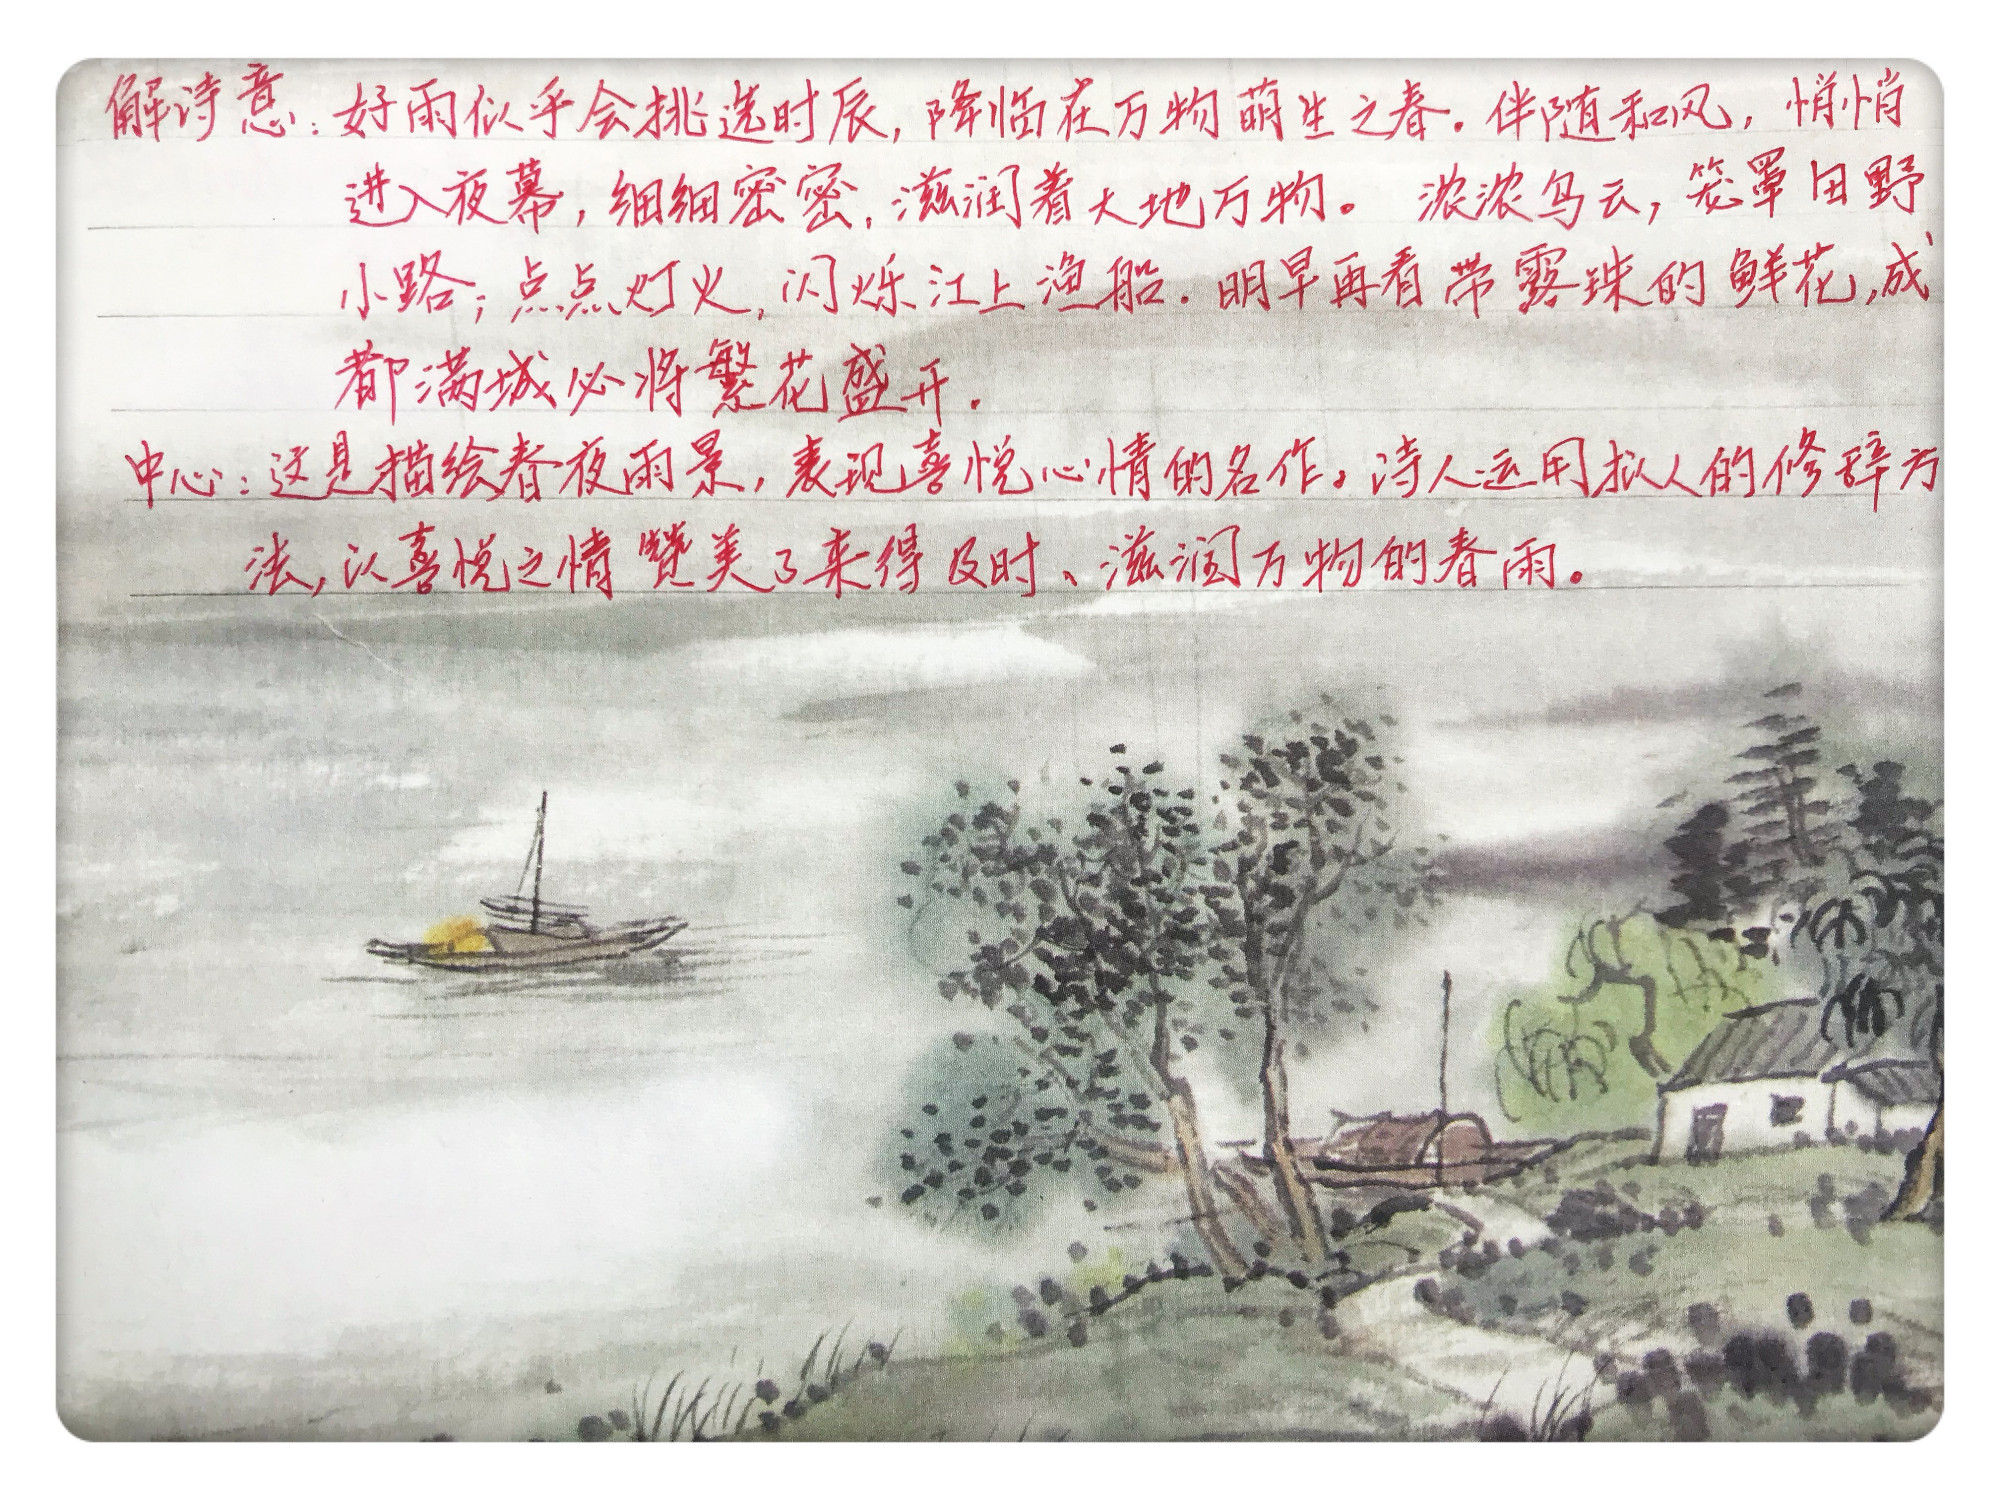 解诗意:好雨似乎会挑选时辰,降临在万物萌生之春。伴随和风,悄悄
进入夜幕,细细密密,滋润着大地万物。浓浓乌云,笼罩田野
小路;点点灯火,闪烁江上渔船。明早再看带露珠的鲜花,成
都满城必将繁花盛开。
中心:这是描绘春夜雨景,表现喜悦心情的名作。诗人运用拟人的修辞方
法,以喜悦之情赞美了来得及时、滋润万物的春雨。